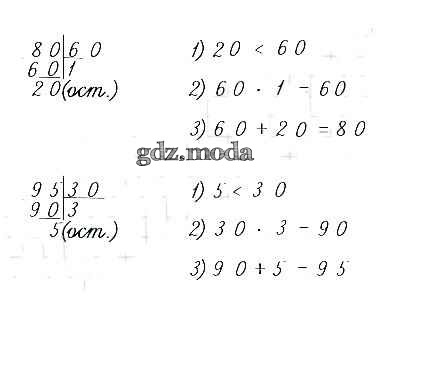 80|60 1) 20 < 60
60|1 2) 60 · 1 - 60
20(ост.) 3) 60 + 20 = 80
gdz.moda
95|30 1) 5 < 30
90|3 2) 30 · 3 - 90
5(ост.) 3) 90 + 5 - 95